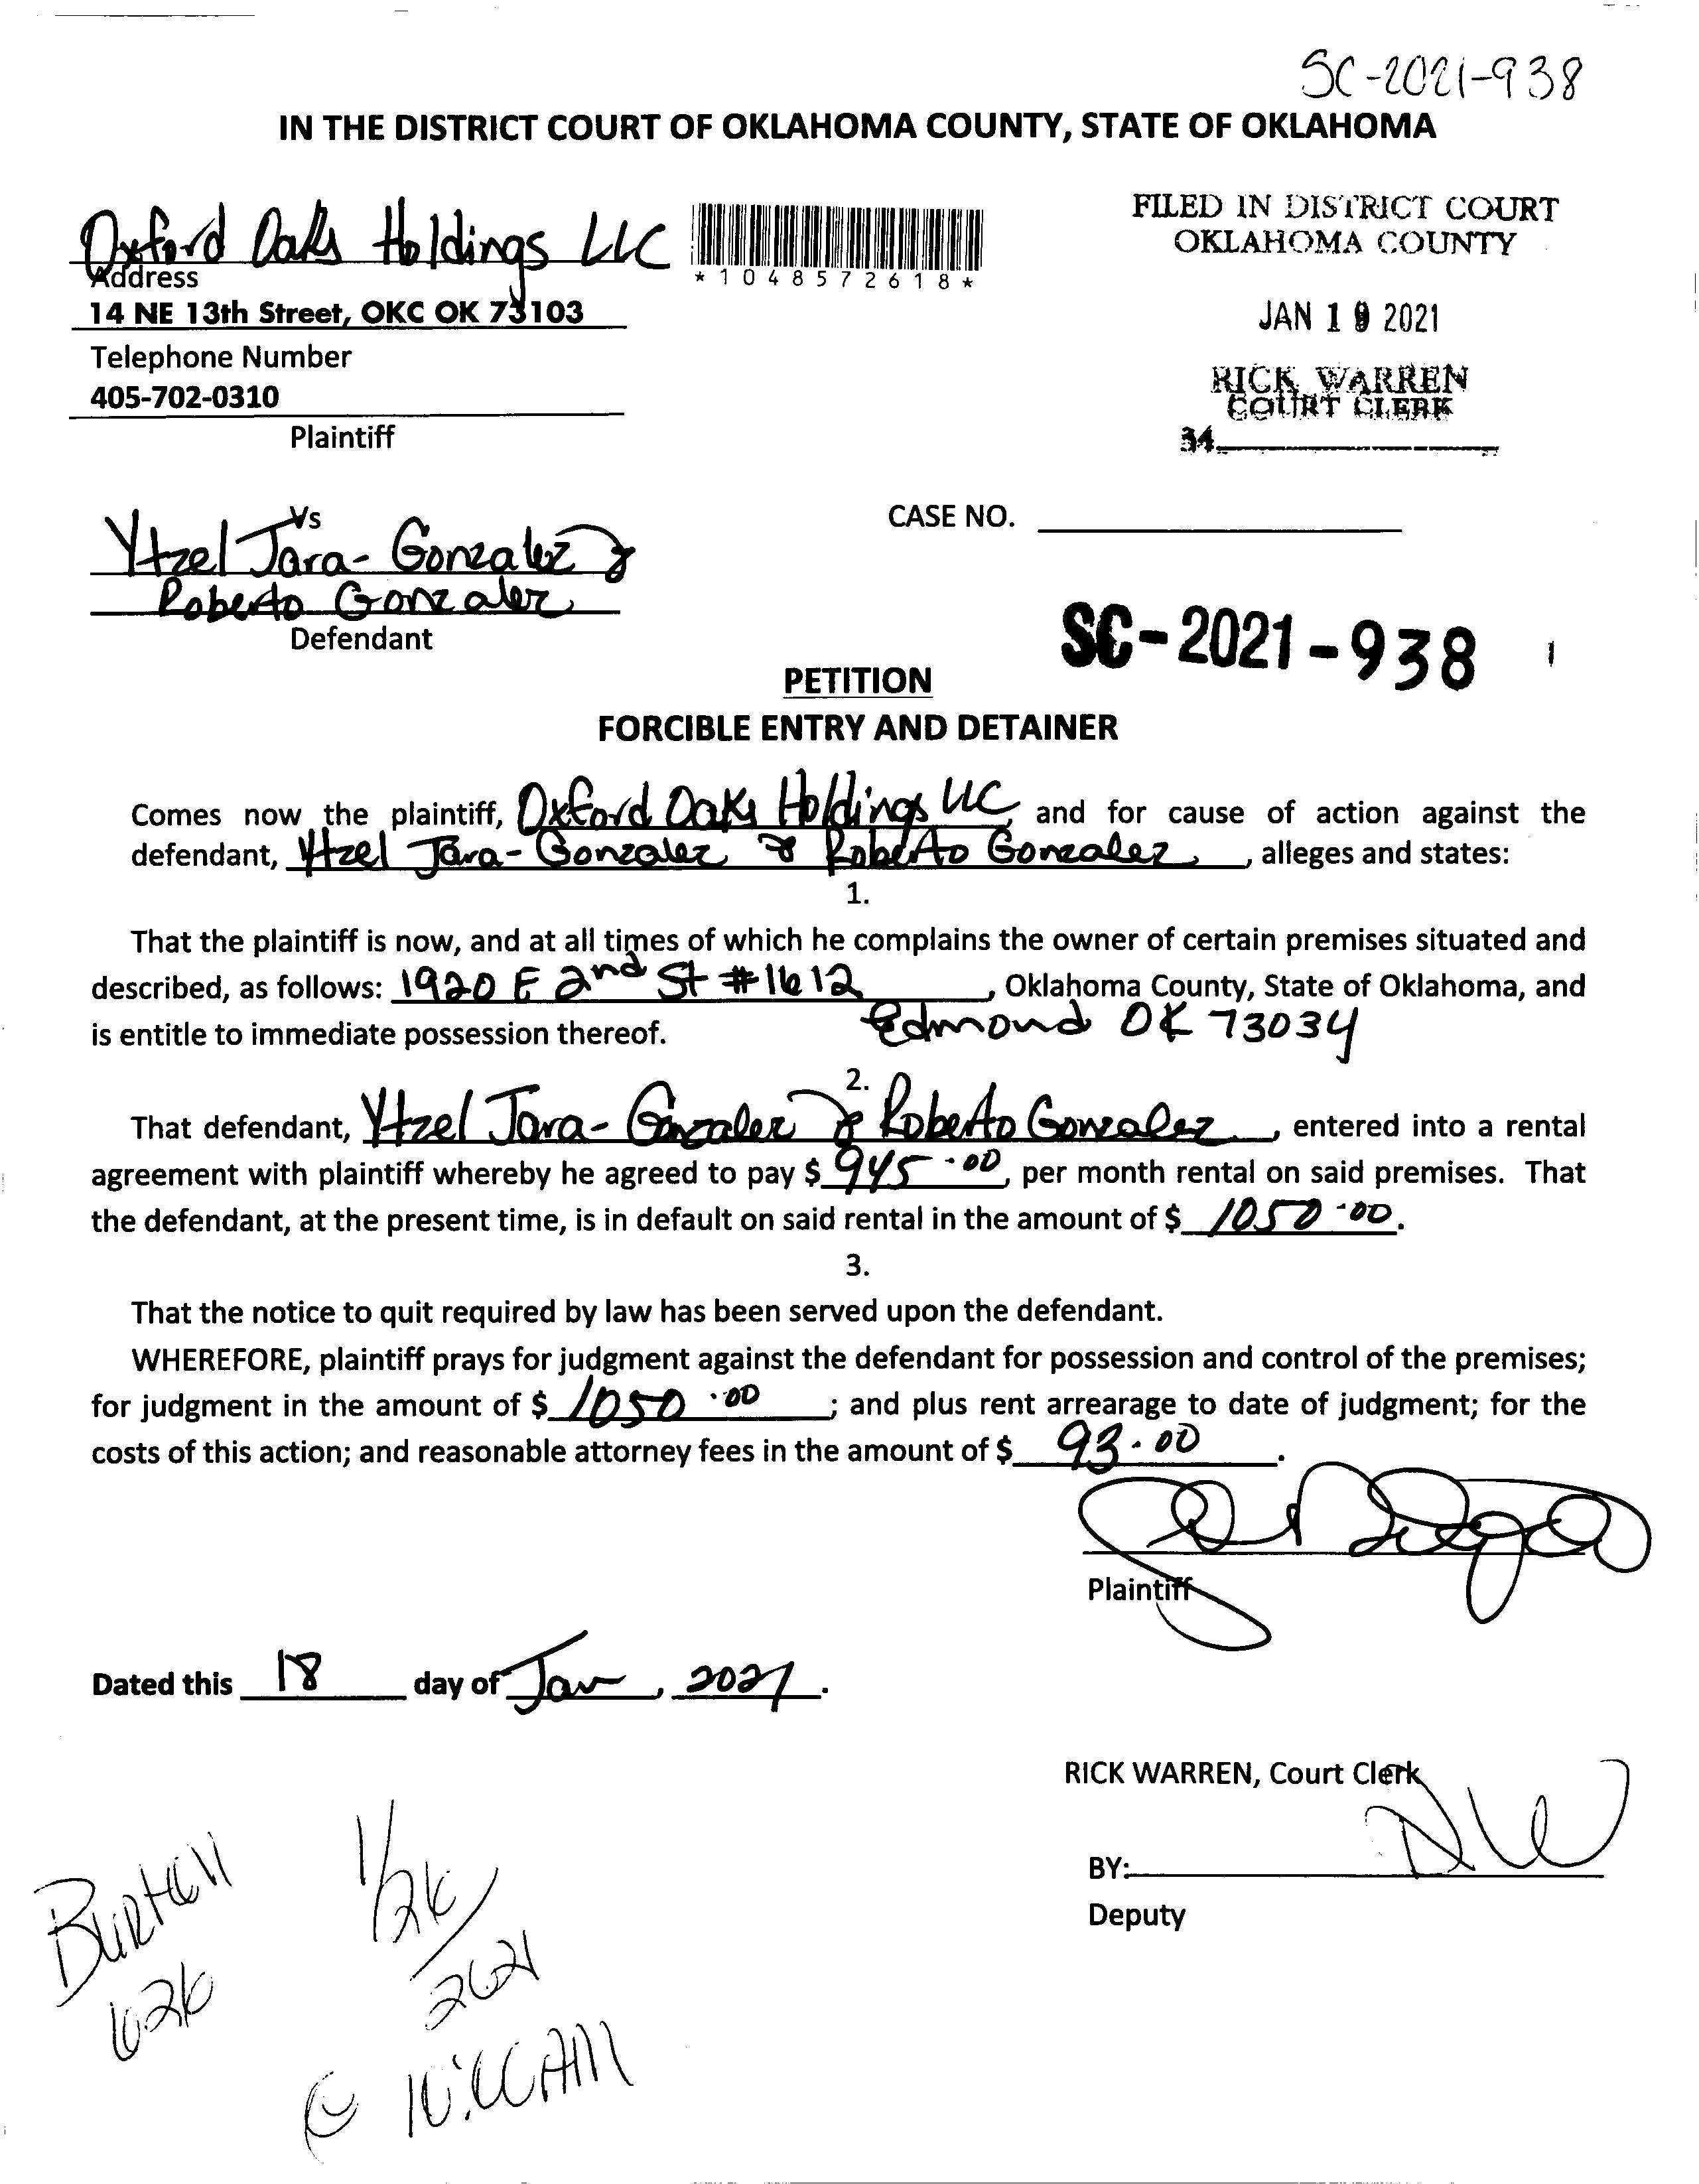 SC-2021-938
IN THE DISTRICT COURT OF OKLAHOMA COUNTY, STATE OF OKLAHOMA
Oxford Oaks Holdings LLC
Address
14 NE 13th Street, OKC OK 73103
Telephone Number
405-702-0310
Plaintiff
*1048572618*
FILED IN DISTRICT COURT
OKLAHOMA COUNTY
JAN 19 2021
RICK WARREN
COURT CLERK
34
Vs
Ytzel Jara-Gonzalez &
Roberto Gonzalez
Defendant
CASE NO.
SC-2021-938
PETITION
FORCIBLE ENTRY AND DETAINER
Comes now the plaintiff, Oxford Oaks Holdings LLC, and for cause of action against the
defendant, Ytzel Jara-Gonzalez & Roberto Gonzalez, alleges and states:
1.
That the plaintiff is now, and at all times of which he complains the owner of certain premises situated and
described, as follows: 1920 E 2nd St #1612, Oklahoma County, State of Oklahoma, and
is entitle to immediate possession thereof. Edmond OK 73034
2.
That defendant, Ytzel Jara-Gonzalez & Roberto Gonzalez, entered into a rental
agreement with plaintiff whereby he agreed to pay $ 945.00, per month rental on said premises. That
the defendant, at the present time, is in default on said rental in the amount of $ 1050.00.
3.
That the notice to quit required by law has been served upon the defendant.
WHEREFORE, plaintiff prays for judgment against the defendant for possession and control of the premises;
for judgment in the amount of $ 1050.00; and plus rent arrearage to date of judgment; for the
costs of this action; and reasonable attorney fees in the amount of $ 93.00.
Plaintiff
Dated this 18 day of Jan, 2021.
RICK WARREN, Court Clerk
BY:
Deputy
1/26/2021